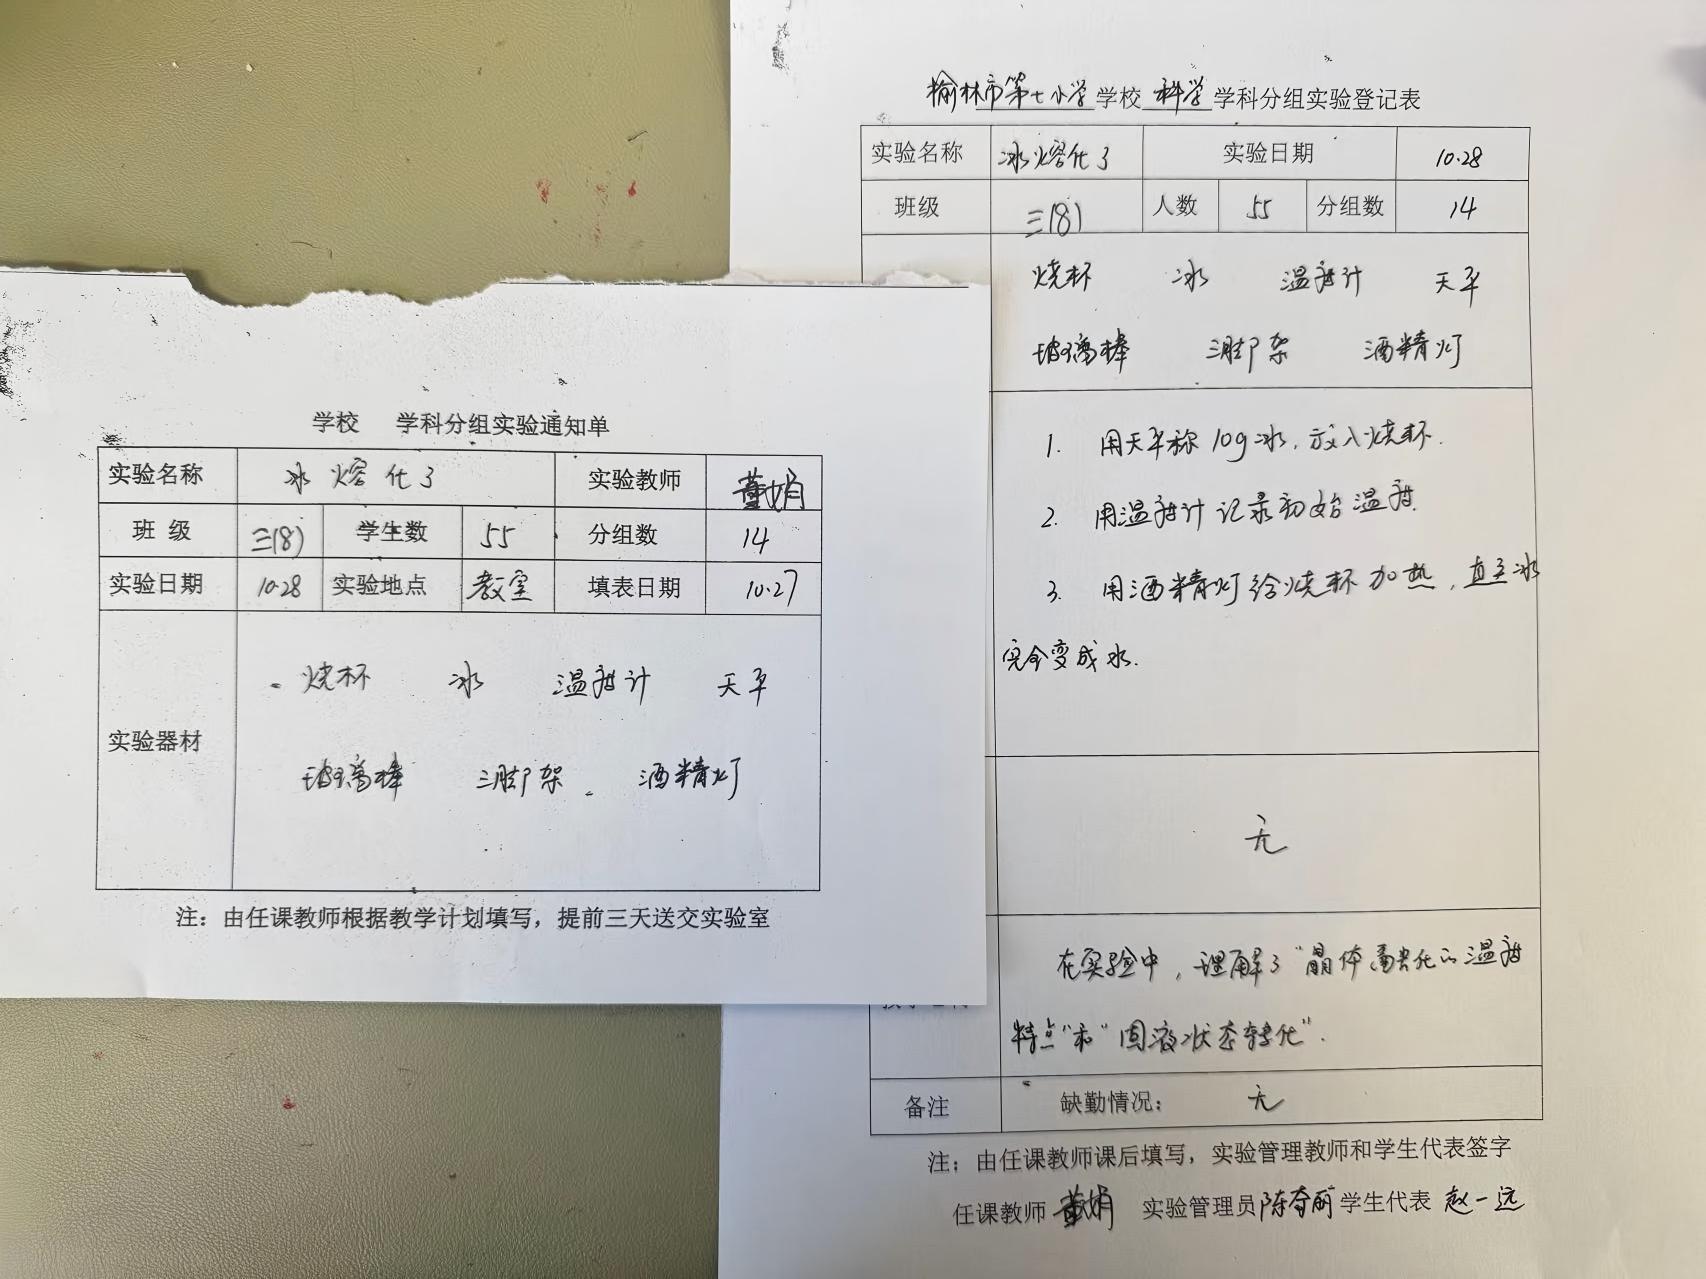 学校 学科分组实验通知单
实验名称 冰熔化了 实验教师 董娟
班 级 三(8) 学生数 55 分组数 14
实验日期 10.28 实验地点 教室 填表日期 10.27
实验器材
烧杯 冰 温度计 天平
玻璃棒 三脚架 酒精灯
注：由任课教师根据教学计划填写，提前三天送交实验室
榆林市第七小学学校 科学 学科分组实验登记表
实验名称 冰熔化了 实验日期 10.28
班级 三(8) 人数 55 分组数 14
烧杯 冰 温度计 天平
玻璃棒 三脚架 酒精灯
1. 用天平称10g冰，放入烧杯.
2. 用温度计记录初始温度.
3. 用酒精灯给烧杯加热，直至冰
完全变成水.
无
在实验中，理解了“晶体熔化的温度
特点”和“固液状态转化”.
备注 缺勤情况： 无
注：由任课教师课后填写，实验管理教师和学生代表签字
任课教师 董娟 实验管理员 学生代表 赵一远